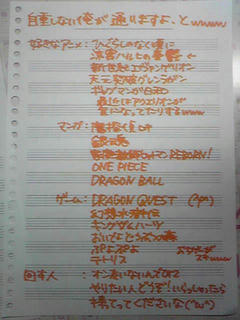 自重しない俺が通りますよ、とwwww
好きなアニメ：ひぐらしのなく頃に
涼宮ハルヒの憂鬱
新世紀エヴァンゲリオン
天元突破グレンラガン
ギャグマンガ日和
最近はアクエリオンが
気になってたりするwww
マンガ：魔探偵ロキ
銀魂
家庭教師ヒットマンREBORN!
ONE PIECE
DRAGON BALL
ゲーム：DRAGON QUEST
幻想水滸伝
キングダムハーツ
おいでよどうぶつの森
ぷよぷよ
テトリス
回す人：
やりたい人どうぞ！いらっしゃったら
持ってってくださいな(^ω^)